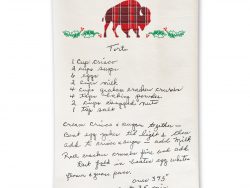 Torte
1 Cup Crisco
2 Cups Sugar
6 eggs
1 Cup milk
4 Cups graham cracker crumbs
4 tsps baking powder
2 Cups chopped nuts
1 tsp salt
Cream crisco & sugar together -
Beat egg yolks til light & then
add to crisco & sugar - add milk
Roll cracker crumbs fine and add
last fold in beaten egg whites
oven 375°